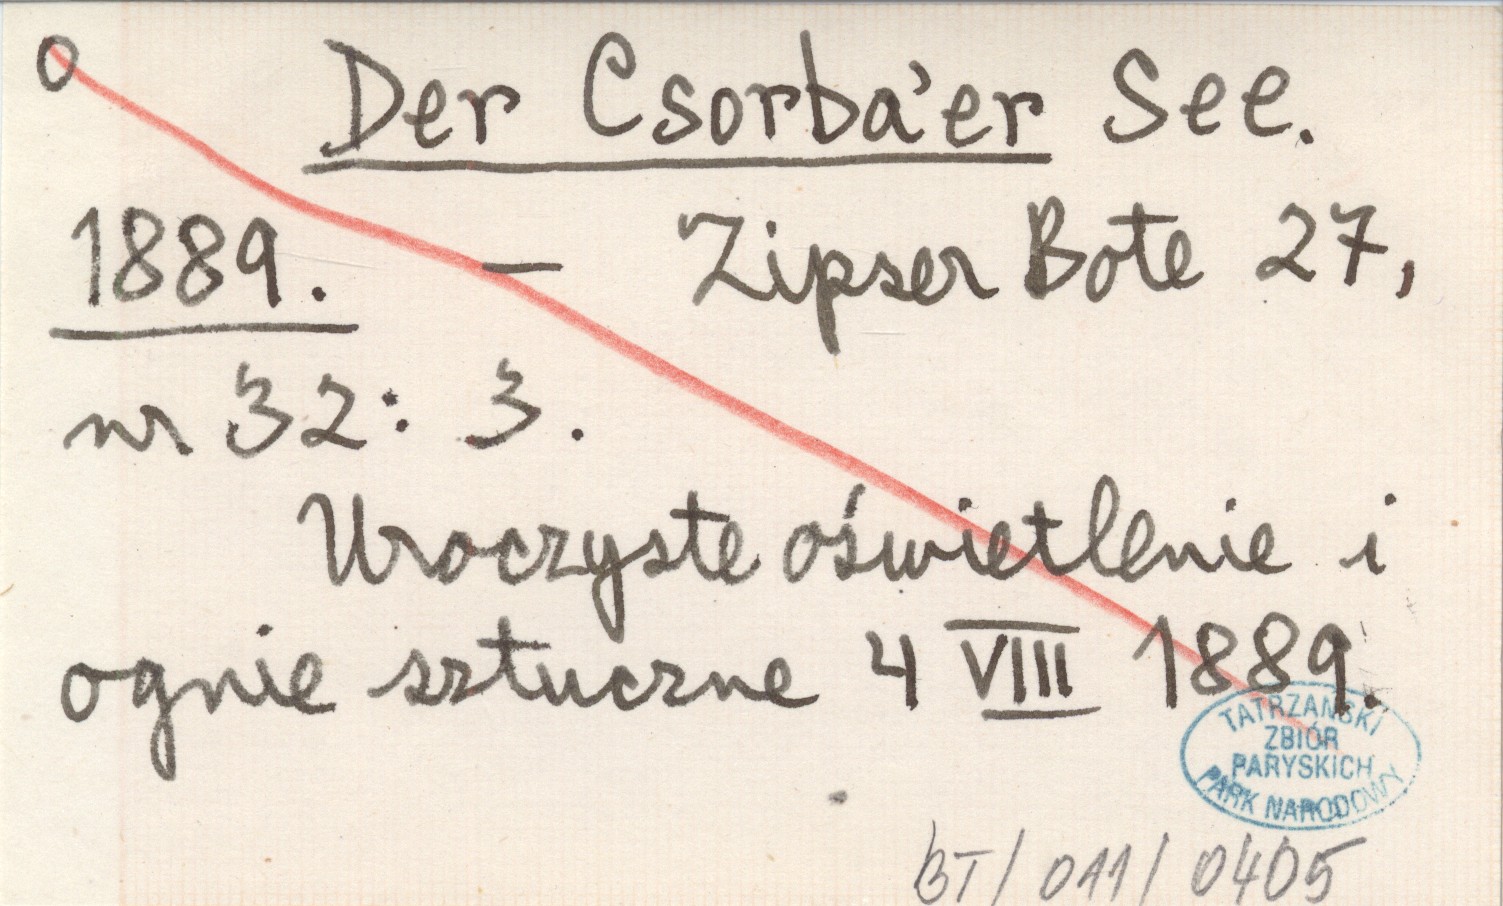 o Der Csorba'er See.
1889. — Zipser Bote 27,
nr 32: 3.
Uroczyste oświetlenie i
ognie sztuczne 4 VIII 1889.
TATRZAŃSKI
ZBIÓR
PARYSKICH
PARK NARODOWY
BT/011/0405